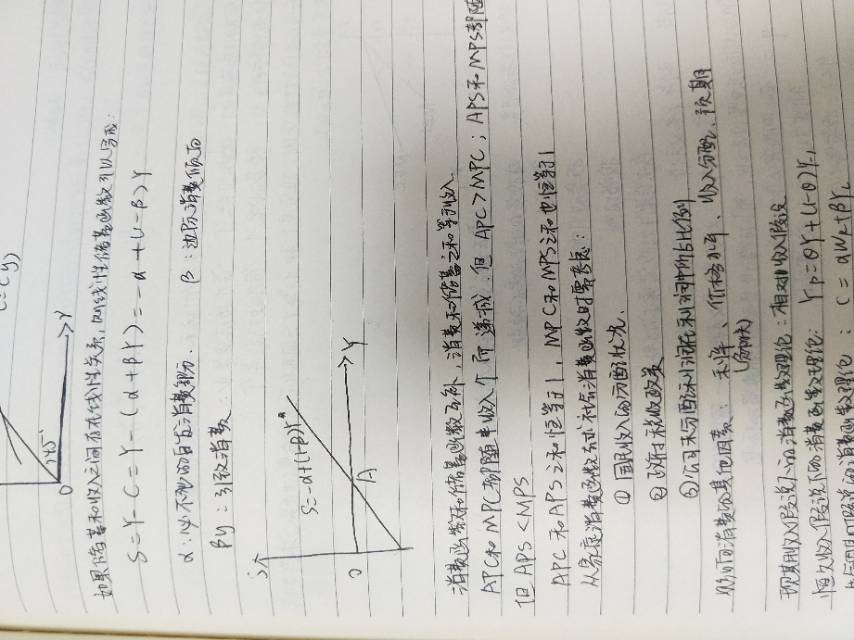 C=C(y)
45°
O
Y
如果储蓄和收入之间存在线性关系,则线性储蓄函数可以写成:
S=Y-C=Y-(α+βY)=-α+(1-β)Y
α:必不可少的自发消费部分. β:边际消费倾向
βy:引致消费
S
S=-α+(1-β)Y
O
A
Y
消费函数和储蓄函数互补,消费和储蓄之和等于收入.
APC和MPC都随 收入个而递减,但APC>MPC;APS和MPS都随
但APS<MPS
APC和APS之和恒等于1,MPC和MPS之和也恒等于1
从家庭消费函数 求社会消费函数时需考虑:
①国民收入的分配状况.
②政府税收政策
③公司未分配利润在利润中所占比例
影响消费的其他因素:利率、价格水平、收入分配、预期
现期收入假说下的消费函数理论:相对收入假设
恒久收入假说下的消费函数理论:Yp=θY+(1-θ)Y-1
的消费函数理论:C=aWR+βYL